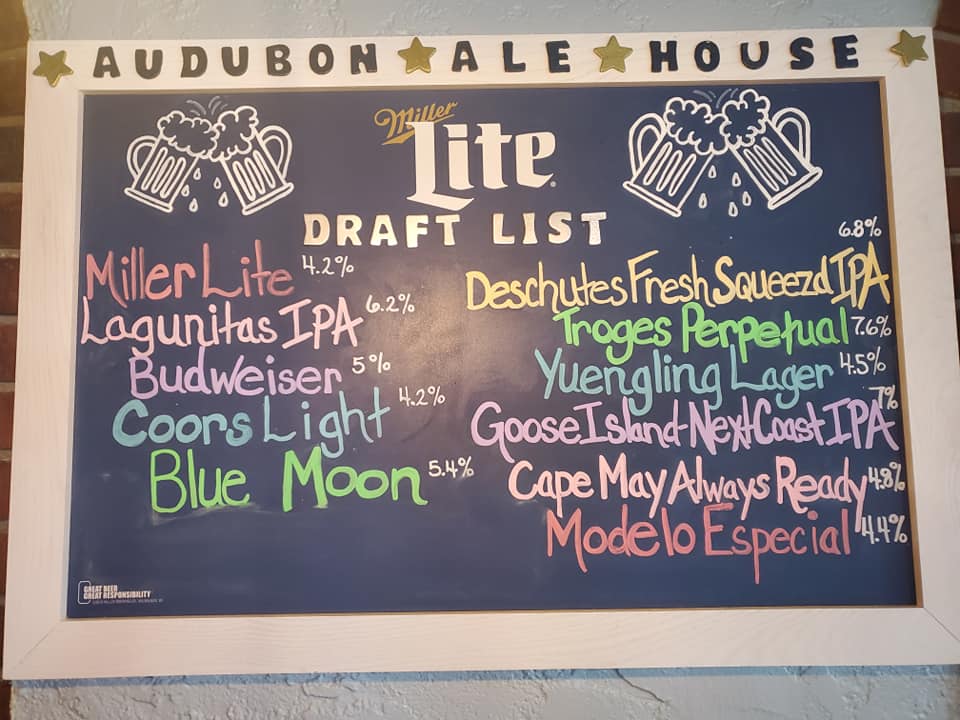 AUDUBON ALE HOUSE
Miller
Lite
DRAFT LIST
Miller Lite 4.2%
Lagunitas IPA 6.2%
Budweiser 5%
Coors Light 4.2%
Blue Moon 5.4%
6.8%
Deschutes Fresh Squeezd IPA
Troges Perpetual 7.6%
Yuengling Lager 4.5%
Goose Island Next Coast IPA 7%
Cape May Always Ready 4.8%
Modelo Especial 4.4%
GREAT BEER
GREAT RESPONSIBILITY